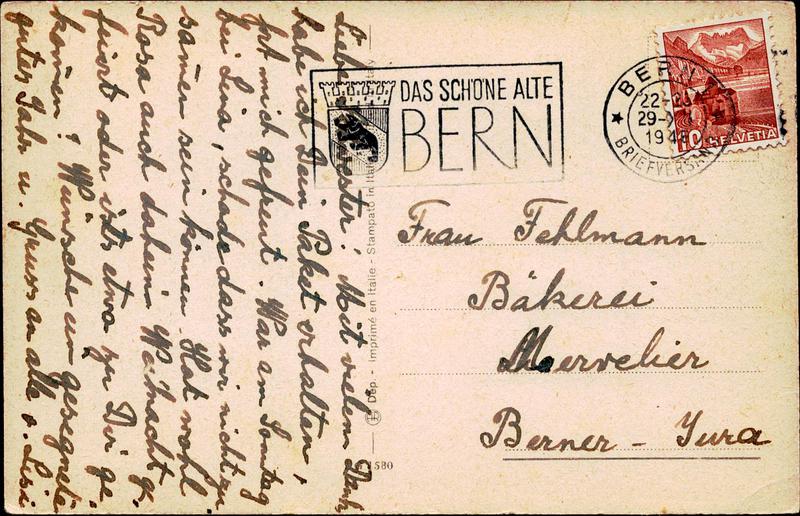 Liebe Schwester! Mit vielem Dank
habe ich Dein Paket erhalten,
hat mich gefreut. War am Sonntag
bei Lina, schade dass wir nicht zu
samen sein können. Hat wohl
Rosa auch daheim Weihnacht ge.
feiert oder ists etwa zu Dir ge.
komen? Wünsche ein gesegnetes
gutes Jahr u. Gruss an alle v. Lisi
Dép. - Imprimé en Italie - Stampato in Italia
1580
DAS SCHÖNE ALTE
BERN
BERN
22-
29-
194
BRIEFVERSAND
10 HELVETIA
Frau Fehlmann
Bäkerei
Mervelier
Berner - Jura